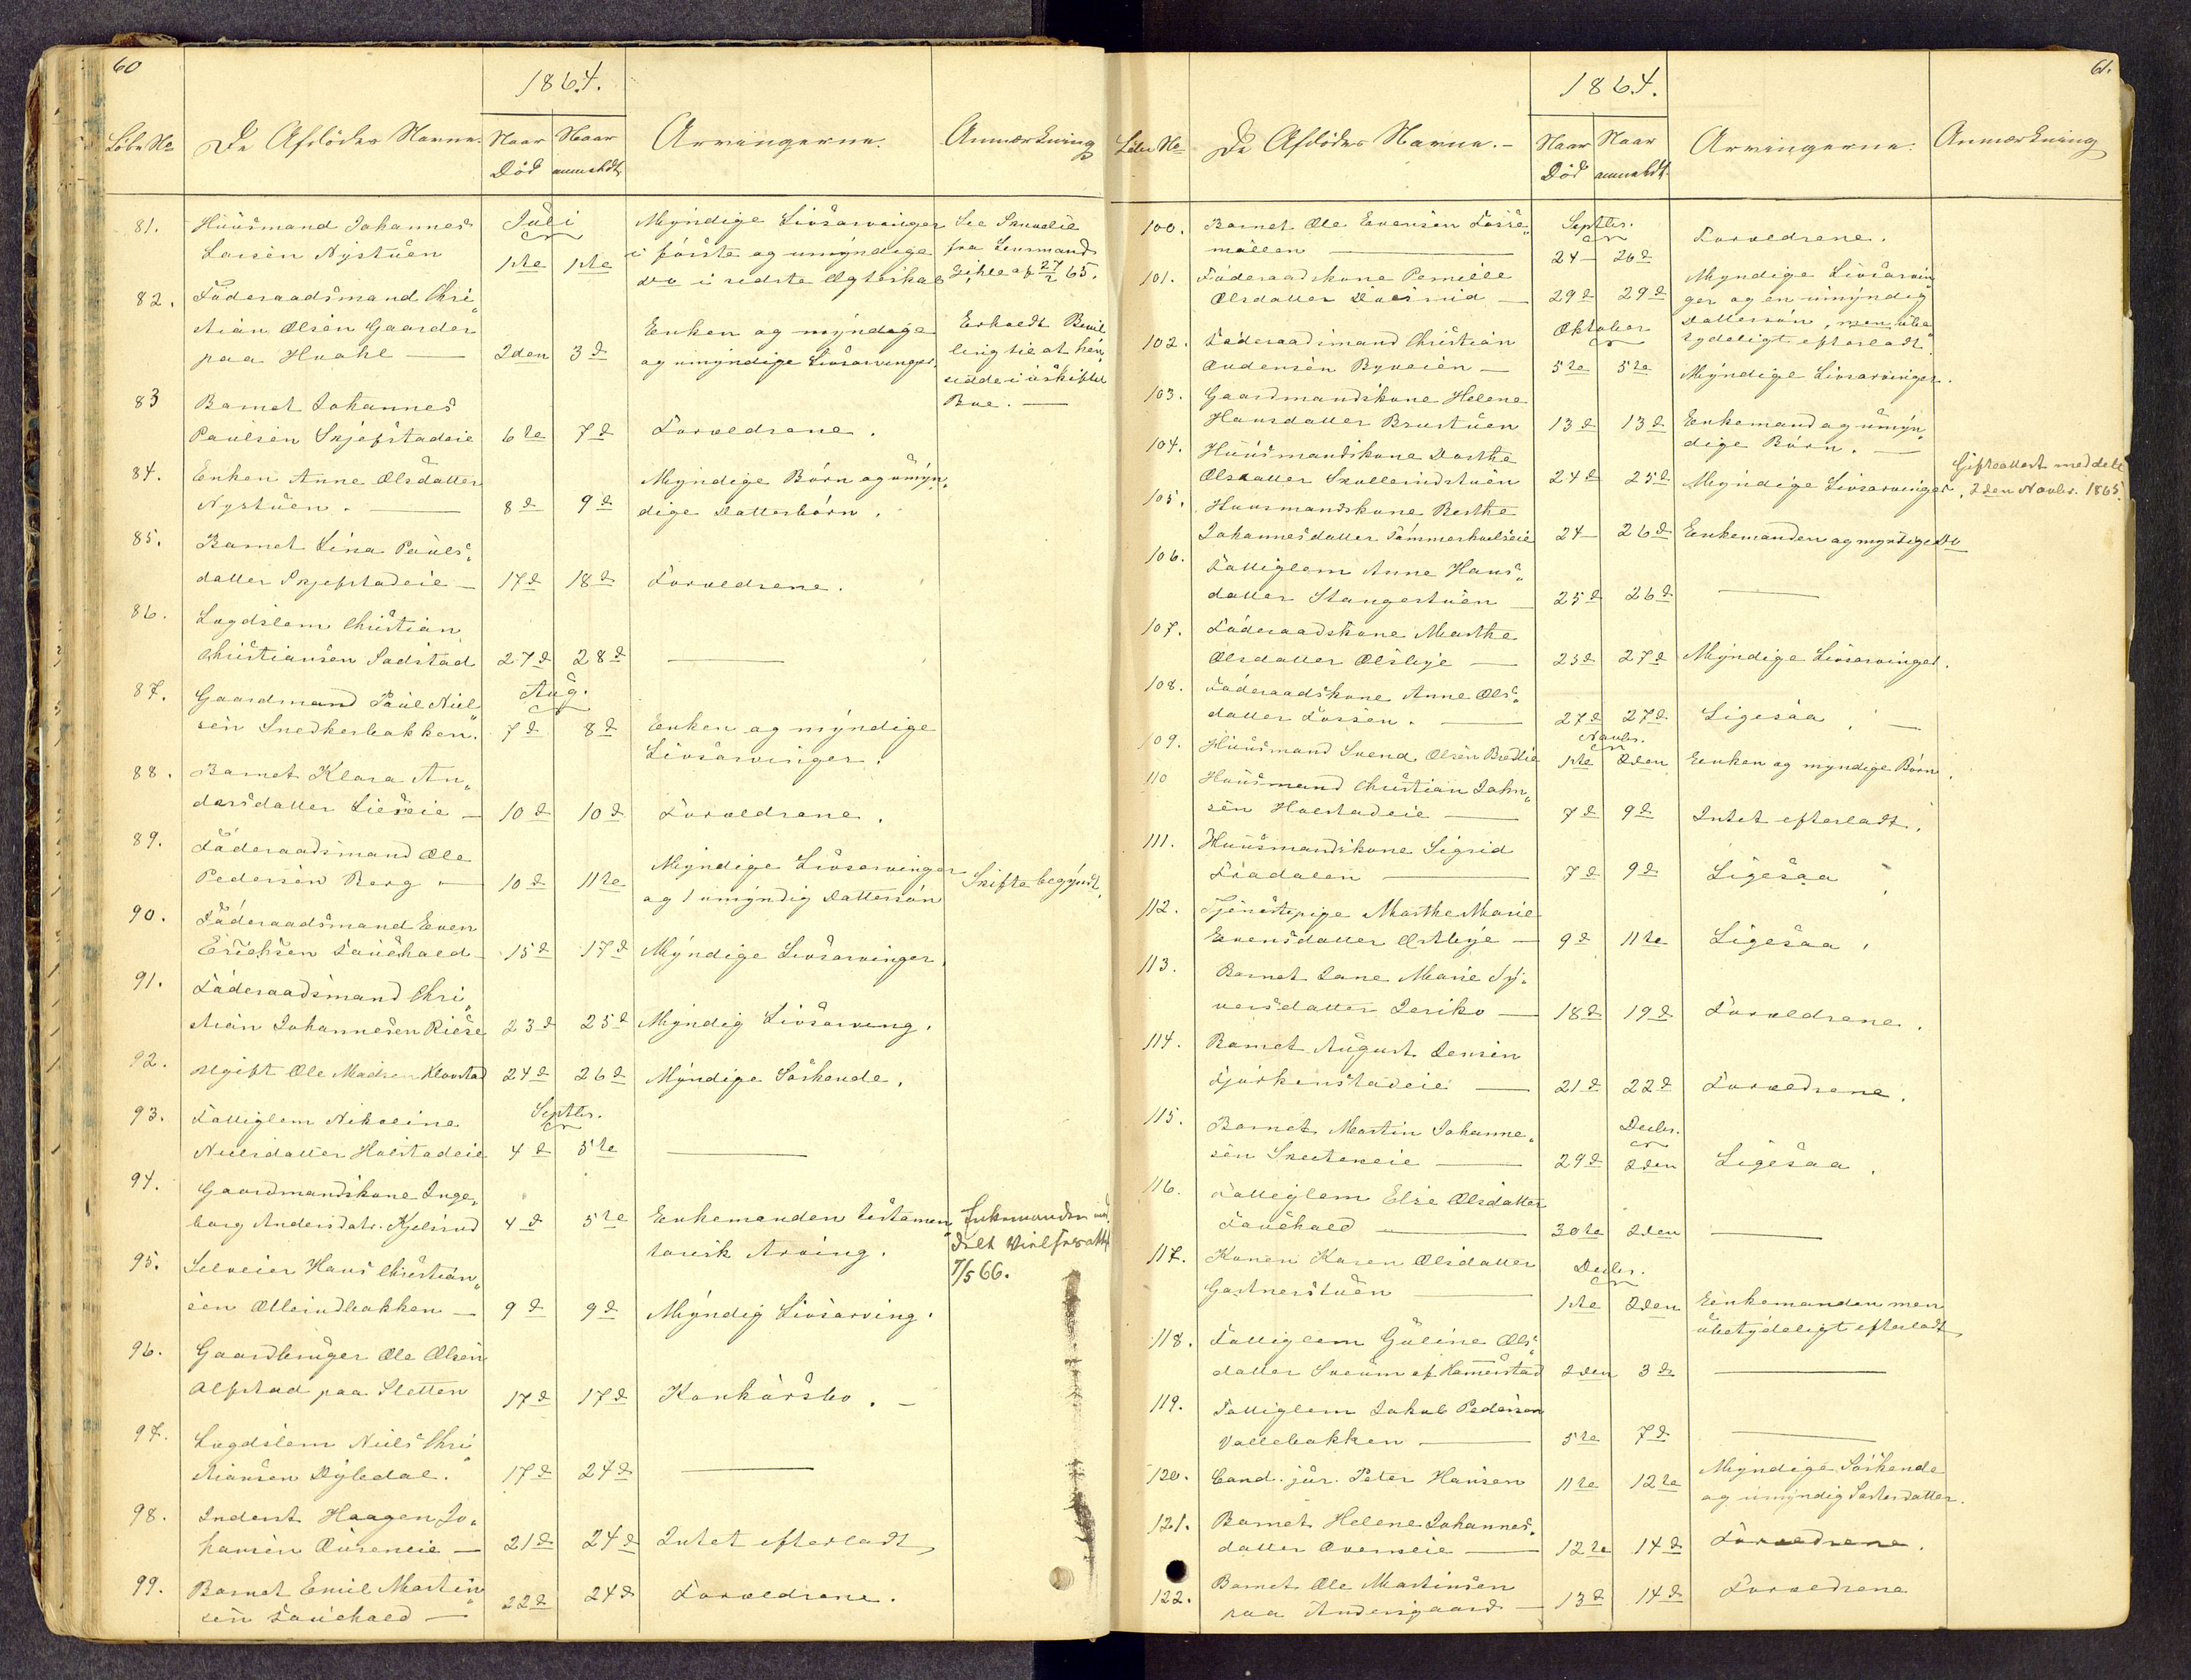 60
1864.
Löbe No
De Afdödes Navne.
Naar Död
Naar anmeldt
Arvingerne.
Anmærkning
Juli
81. Huusmand Johannes
Larsen Nystuen 1ste 1ste
Myndige Livsarvinger
i förste og umyndige
do i sidste Ægteskab
See Skrivelse
fra Lensmand
Gihle af 27/2 65.
82. Föderaadsmand Chri„
stian Olsen Gaarder
paa Hvahl — 2den 3d
Enken og myndige
og umyndige Livsarvinger.
Erholdt Bevil
ling til at hen„
sidde i uskiftet
Boe. —
83 Barnet Johannes
Paulsen Skjefstadeie 6te 7d Forældrene.
84. Enken Anne Olsdatter
Nystuen. — 8d 9d
Myndige Börn og umyn„
dige Datterbörn.
85. Barnet Lina Pauls„
datter Skjefstadeie — 17d 18d Forældrene.
86. Lægdslem Christian
Christiansen Sadstad 27d 28d —
87. Gaardmand Paul Niel„
sen Snedkerbakken.
Aug.
7d 8d Enken og myndige
Livsarvinger.
88. Barnet Klara An„
dersdatter Lieseie — 10d 10d Forældrene.
89. Föderaadsmand Ole
Pedersen Berg — 10d 11te
Myndige Livsarvinger
og 1 umyndig Dattersön
Skifte begyndt.
90. Föderaadsmand Even
Erichsen Fauchald — 15d 17d Myndige Livsarvinger.
91. Föderaadsmand Chri„
stian Johannesen Riise 23d 25d Myndig Livsarving.
92. Ugift Ole Madsen Klovstad 24d 26d Myndige Söskende.
Septbr.
93. Fattiglem Nikoline
Nielsdatter Holstadeie 4d 5te —
94. Gaardmandskone Inge„
borg Andersdatr. Kjelsrud 4d 5te
Enkemanden testamen„
tarisk Arving.
Enkemanden med„
delt Vielsesattst
7/5 66.
95. Selveier Hans Christian„
sen Ollerudbakken — 9d 9d Myndig Livsarving.
96. Gaardbruger Ole Olsen
Alfstad paa Sletten 17d 17d Konkursbo. —
97. Lægdslem Niels Chri„
stiansen Dybdal. 17d 24d —
98. Inderst Haagen Jo„
hansen Öuseneie — 21d 24d Intet efterladt,
99. Barnet Emil Martin„
sen Fauchald — 22d 24d Forældrene.
61.
1864.
Löbe No
De Afdödes Navne. —
Naar Död
Naar anmeldt.
Arvingerne.
Anmærkning
Septbr.
100. Barnet Ole Evensen Fosse„
möllen — 24 — 26d Forældrene.
101. Föderaadskone Pernille
Olsdatter — 29d 29d
Myndige Livsarvin
ger og en umyndig
Dattersön, men ube„
tydeligt efterladt.
Oktober
102. Föderaadsmand Christian
Andersen Byveien — 5te 5te Myndige Livsarvinger.
103. Gaardmandskone Helene
Hansdatter Brustuen 13d 13d Enkemand og umyn„
dige Börn. —
104. Huusmandskone Dorthe
Olsdatter Skollerudstuen 24d 25d Myndige Livsarvinger
Gifteattest meddelt
2den Novbr. 1865.
105. Huusmandskone Berthe
Johannesdatter Tömmerhoelseie 24 — 26d Enkemanden og myndige do
106. Fattiglem Anne Hans„
datter Stangestuen — 25d 26d —
107. Föderaadskone Marthe
Olsdatter Olsbye — 25d 27d Myndige Livsarvinger.
108. Föderaadskone Anne Ols„
datter Fossen. — 27d 27d Ligesaa. —
Novbr.
109. Huusmand Svend Olsen Bredlie 1ste 2den Enken og myndige Börn.
110 Huusmand Christian John„
sen Holstadeie — 7d 9d Intet efterladt.
111. Huusmandskone Sigrid
Fladalen — 7d 9d Ligesaa
112. Tjenestepige Marthe Marie
Evensdatter Østbye — 9d 11te Ligesaa.
113. Barnet Jane Marie Sy„
versdatter Jeriko — 18d 19d Forældrene.
114. Barnet August Jensen
Gjörkenstadeie — 21d 22d Forældrene.
115. Barnet Martin Johanne„
sen Skuteneie — 29d
Decbr.
2den Ligesaa.
116. Fattiglem Else Olsdatter
Fauchald — 30te 2den —
Decbr.
117. Konen Karen Olsdatter
Gartnerstuen — 1ste 2den Enkemanden men
ubetydeligt efterladt
118. Fattiglem Guline Ols„
datter Sveum af Hammerstad 2den 3die —
119. Fattiglem Jakob Pedersen
Vollebakken — 5te 7d —
120. Cand. jur. Peter Hansen 11te 12te Myndige Söskende
og umyndig Sösterdatter.
121. Barnet Helene Johannes„
datter Overneie — 12te 14d Forældrene.
122. Barnet Ole Martinsen
paa Andersgaard — 13d 14d Forældrene